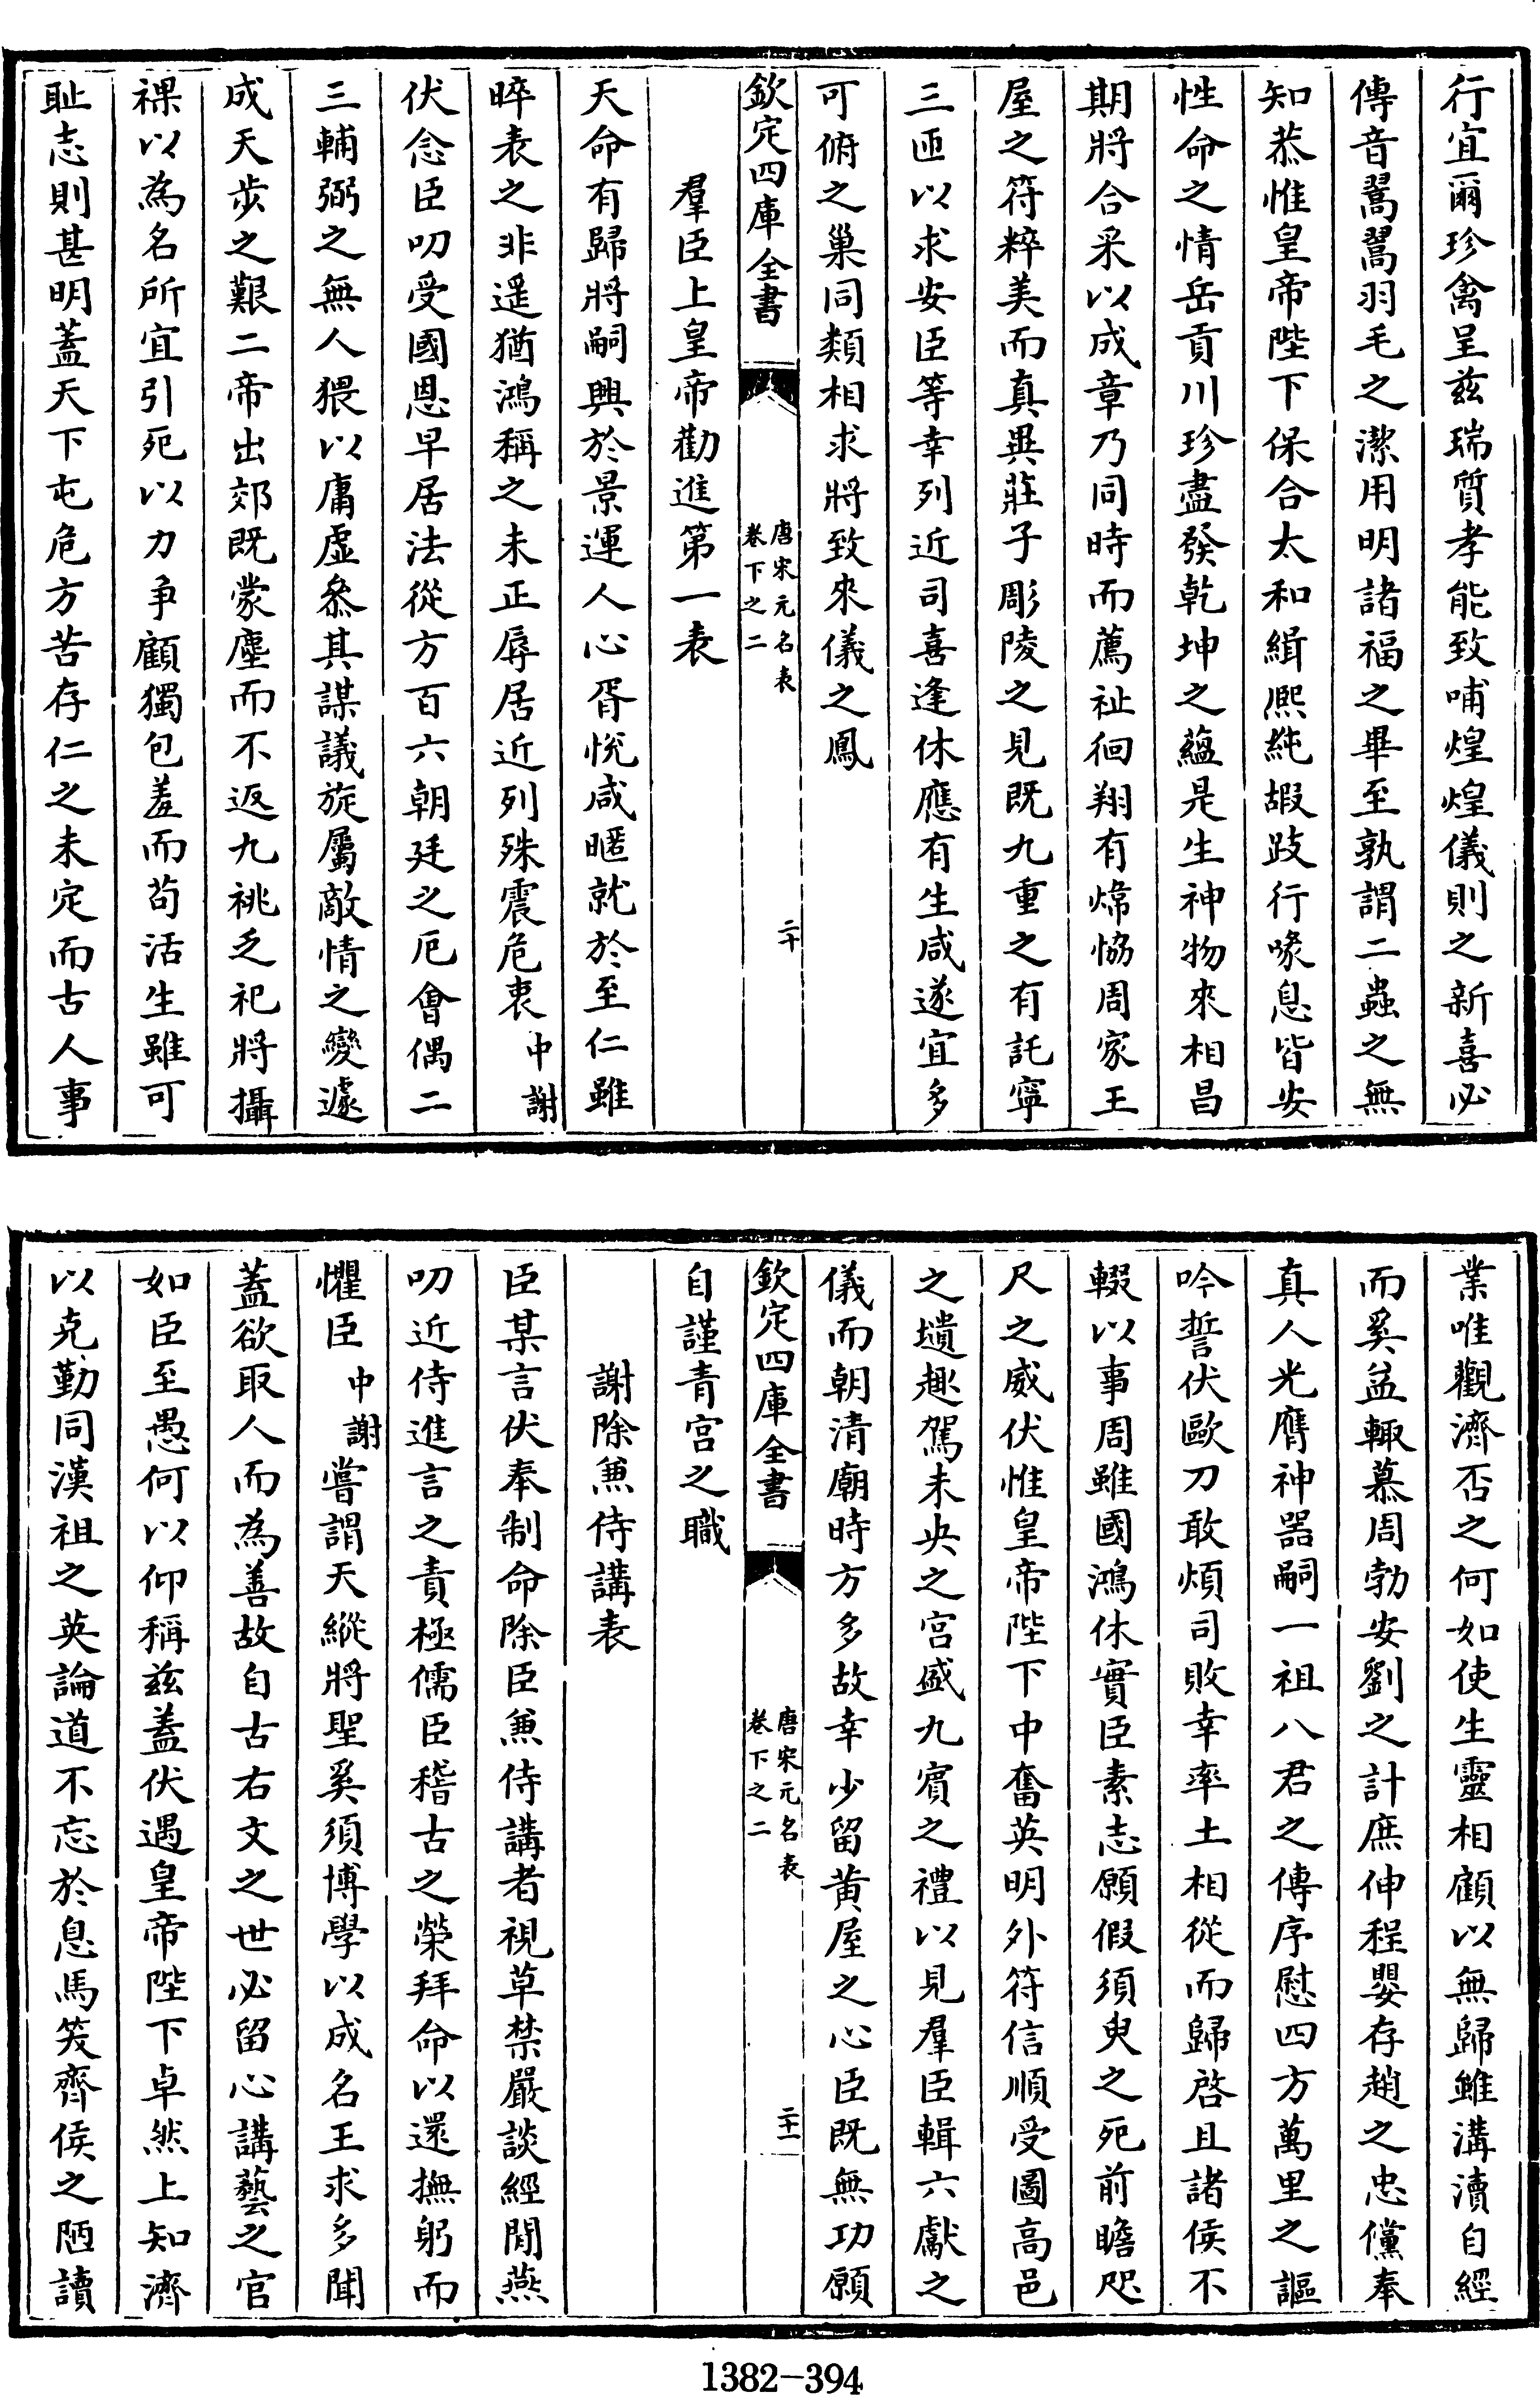 行宜爾珍禽呈兹瑞質孝能致哺煌煌儀則之新喜必
傳音翯翯羽毛之潔用明諸福之畢至孰謂二蟲之無
知恭惟皇帝陛下保合太和緝熙純嘏跂行喙息皆安
性命之情岳貢川珍盡發乾坤之蘊是生神物來相昌
期將合采以成章乃同時而薦祉徊翔有煒恊周家王
屋之符粹美而真異莊子彫陵之見既九重之有託寧
三匝以求安臣等幸列近司喜逢休應有生咸遂宜多
可俯之巢同類相求將致來儀之鳳
欽定四庫全書
唐宋元名表
卷下之二
二十
羣臣上皇帝勸進第一表
天命有歸將嗣興於景運人心胥悅咸暱就於至仁雖
晬表之非遥猶鴻稱之未正辱居近列殊震危衷中謝
伏念臣叨受國恩早居法從方百六朝廷之厄會偶二
三輔弼之無人猥以庸虛叅其謀議旋屬敵情之變遽
成天步之艱二帝出郊既蒙塵而不返九祧乏祀將攝
祼以為名所宜引死以力爭顧獨包羞而苟活生雖可
耻志則甚明蓋天下屯危方苦存仁之未定而古人事
業唯觀濟否之何如使生靈相顧以無歸雖溝瀆自經
而奚益輙慕周勃安劉之計庶伸程嬰存趙之忠儻奉
真人光膺神器嗣一祖八君之傳序慰四方萬里之謳
吟誓伏歐刀敢煩司敗幸率土相從而歸啓且諸侯不
輟以事周雖國鴻休實臣素志願假須臾之死前瞻咫
尺之威伏惟皇帝陛下中奮英明外符信順受圖高邑
之壝趣駕未央之宫盛九賓之禮以見羣臣輯六獻之
儀而朝清廟時方多故幸少留黄屋之心臣既無功願
欽定四庫全書
唐宋元名表
卷下之二
二十一
自謹青宫之職
謝除兼侍講表
臣某言伏奉制命除臣兼侍講者視草禁嚴談經閒燕
叨近侍進言之責極儒臣稽古之榮拜命以還撫躬而
懼臣中謝嘗謂天縱將聖奚須博學以成名王求多聞
蓋欲取人而為善故自古右文之世必留心講藝之官
如臣至愚何以仰稱兹蓋伏遇皇帝陛下卓然上知濟
以克勤同漢祖之英論道不忘於息馬笑齊侯之陋讀
1382-394